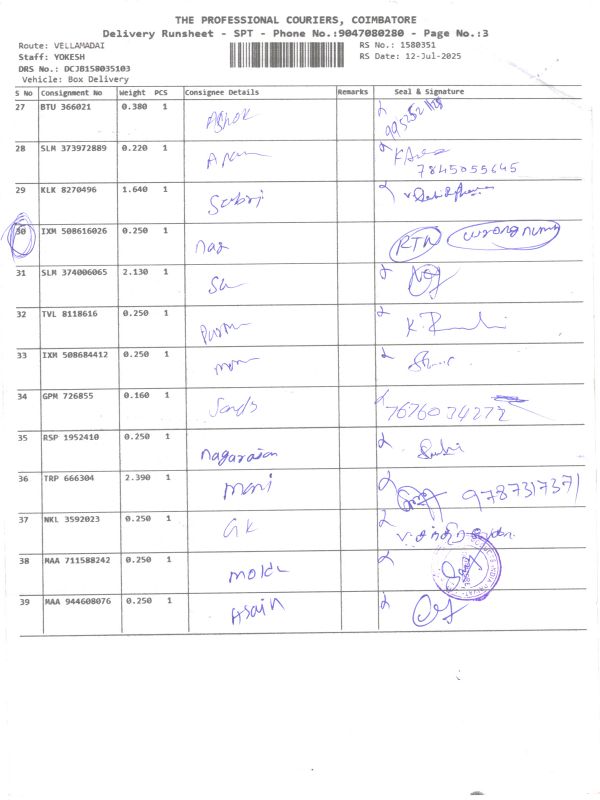 THE PROFESSIONAL COURIERS, COIMBATORE
Delivery Runsheet - SPT - Phone No.:9047080280 - Page No.:3
Route: VELLAMADAI
RS No.: 1580351
Staff: YOKESH
RS Date: 12-Jul-2025
DRS No.: DCJB158035103
Vehicle: Box Delivery
S No Consignment No Weight PCS Consignee Details Remarks Seal & Signature
27 BTU 366021 0.380 1 Ashok
28 SLM 373972889 0.220 1
7845055645
29 KLK 8270496 1.640 1 Sabri
30 IXM 508616026 0.250 1 nag RTN wrong
31 SLM 374006065 2.130 1 Sa
32 TVL 8118616 0.250 1
33 IXM 508684412 0.250 1
34 GPM 726855 0.160 1
35 RSP 1952410 0.250 1 nagarajan
36 TRP 666304 2.390 1 mani 9787317371
37 NKL 3592023 0.250 1 GK
38 MAA 711588242 0.250 1
39 MAA 944608076 0.250 1 Asain